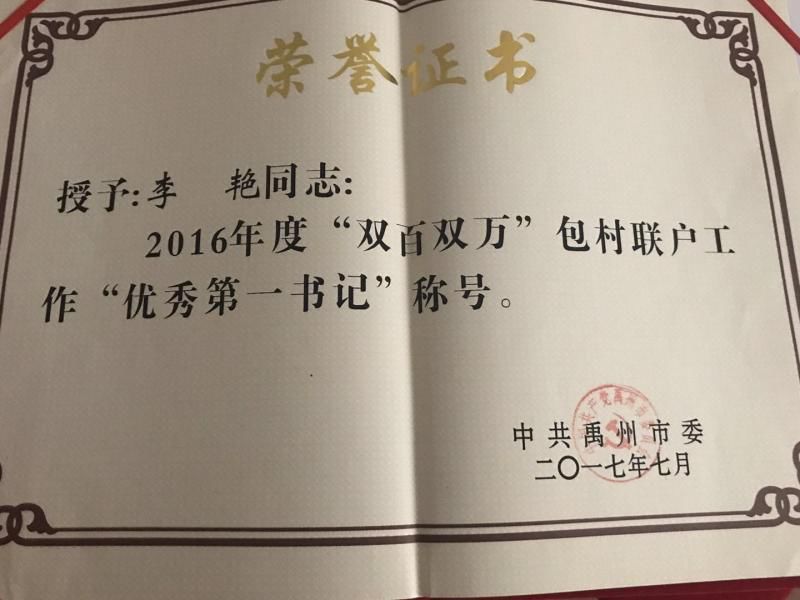 荣誉证书
授予:李 艳同志:
2016年度“双百双万”包村联户工
作“优秀第一书记”称号。
中共禹州市委
二〇一七年七月